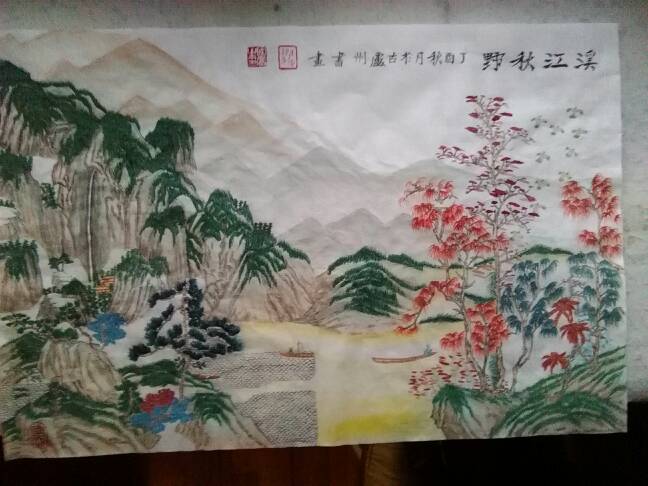 溪江秋野 丁酉秋月於古盧州書畫